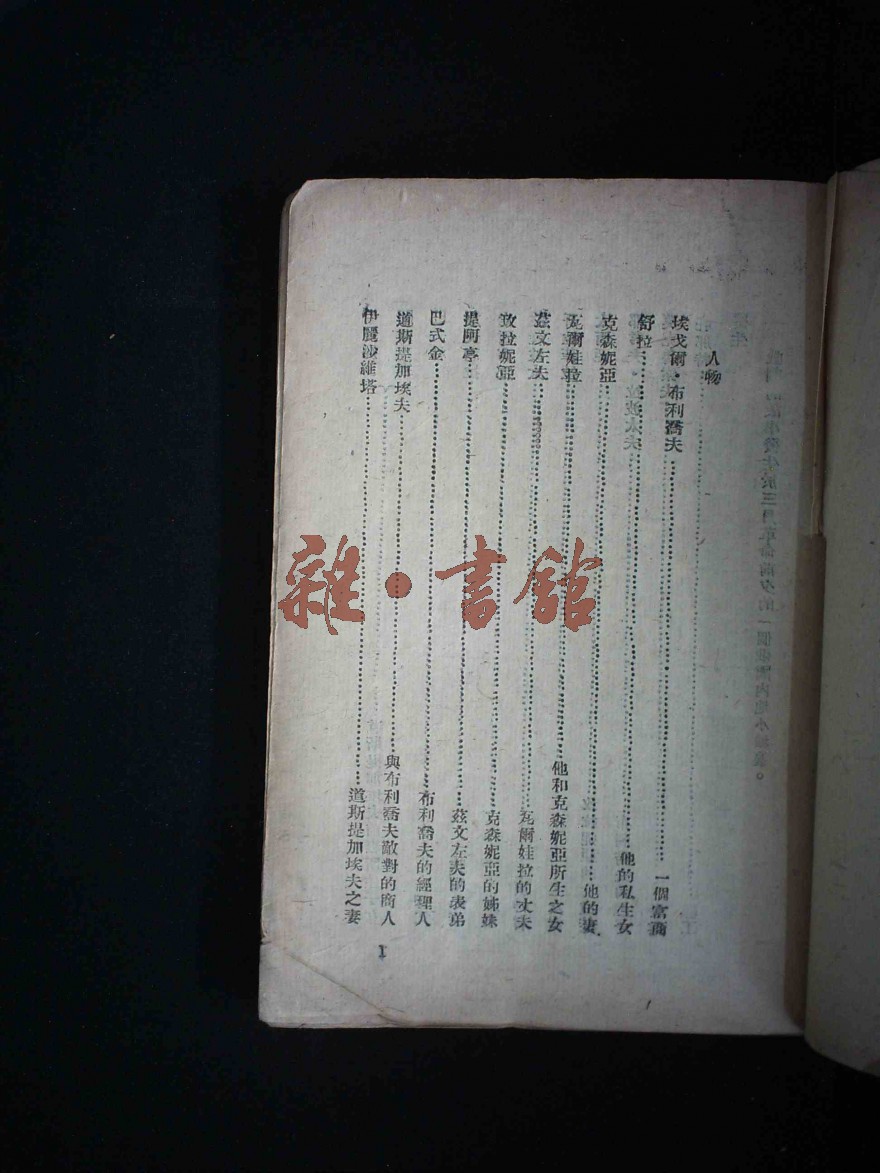 人物
埃戈爾·布利喬夫……一個富商
舒拉……他的私生女
克森妮亞……他的妻
瓦爾娃拉……他和克森妮亞所生之女
茲文左夫……瓦爾娃拉的丈夫
敏拉妮亞……克森妮亞的姊妹
提阿亭……茲文左夫的表弟
巴式金……布利喬夫的經理人
道斯提加埃夫……與布利喬夫敵對的商人
伊麗沙維塔……道斯提加埃夫之妻
1
雜·書館